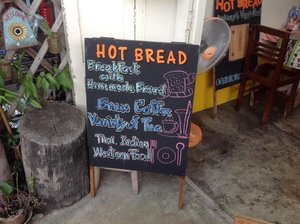 WELCOME
HOT BREAD
HOT BREAD
Breakfast
with
Homemade Bread
Brew Coffee
Variety of Tea
Thai, Indian
Western Food